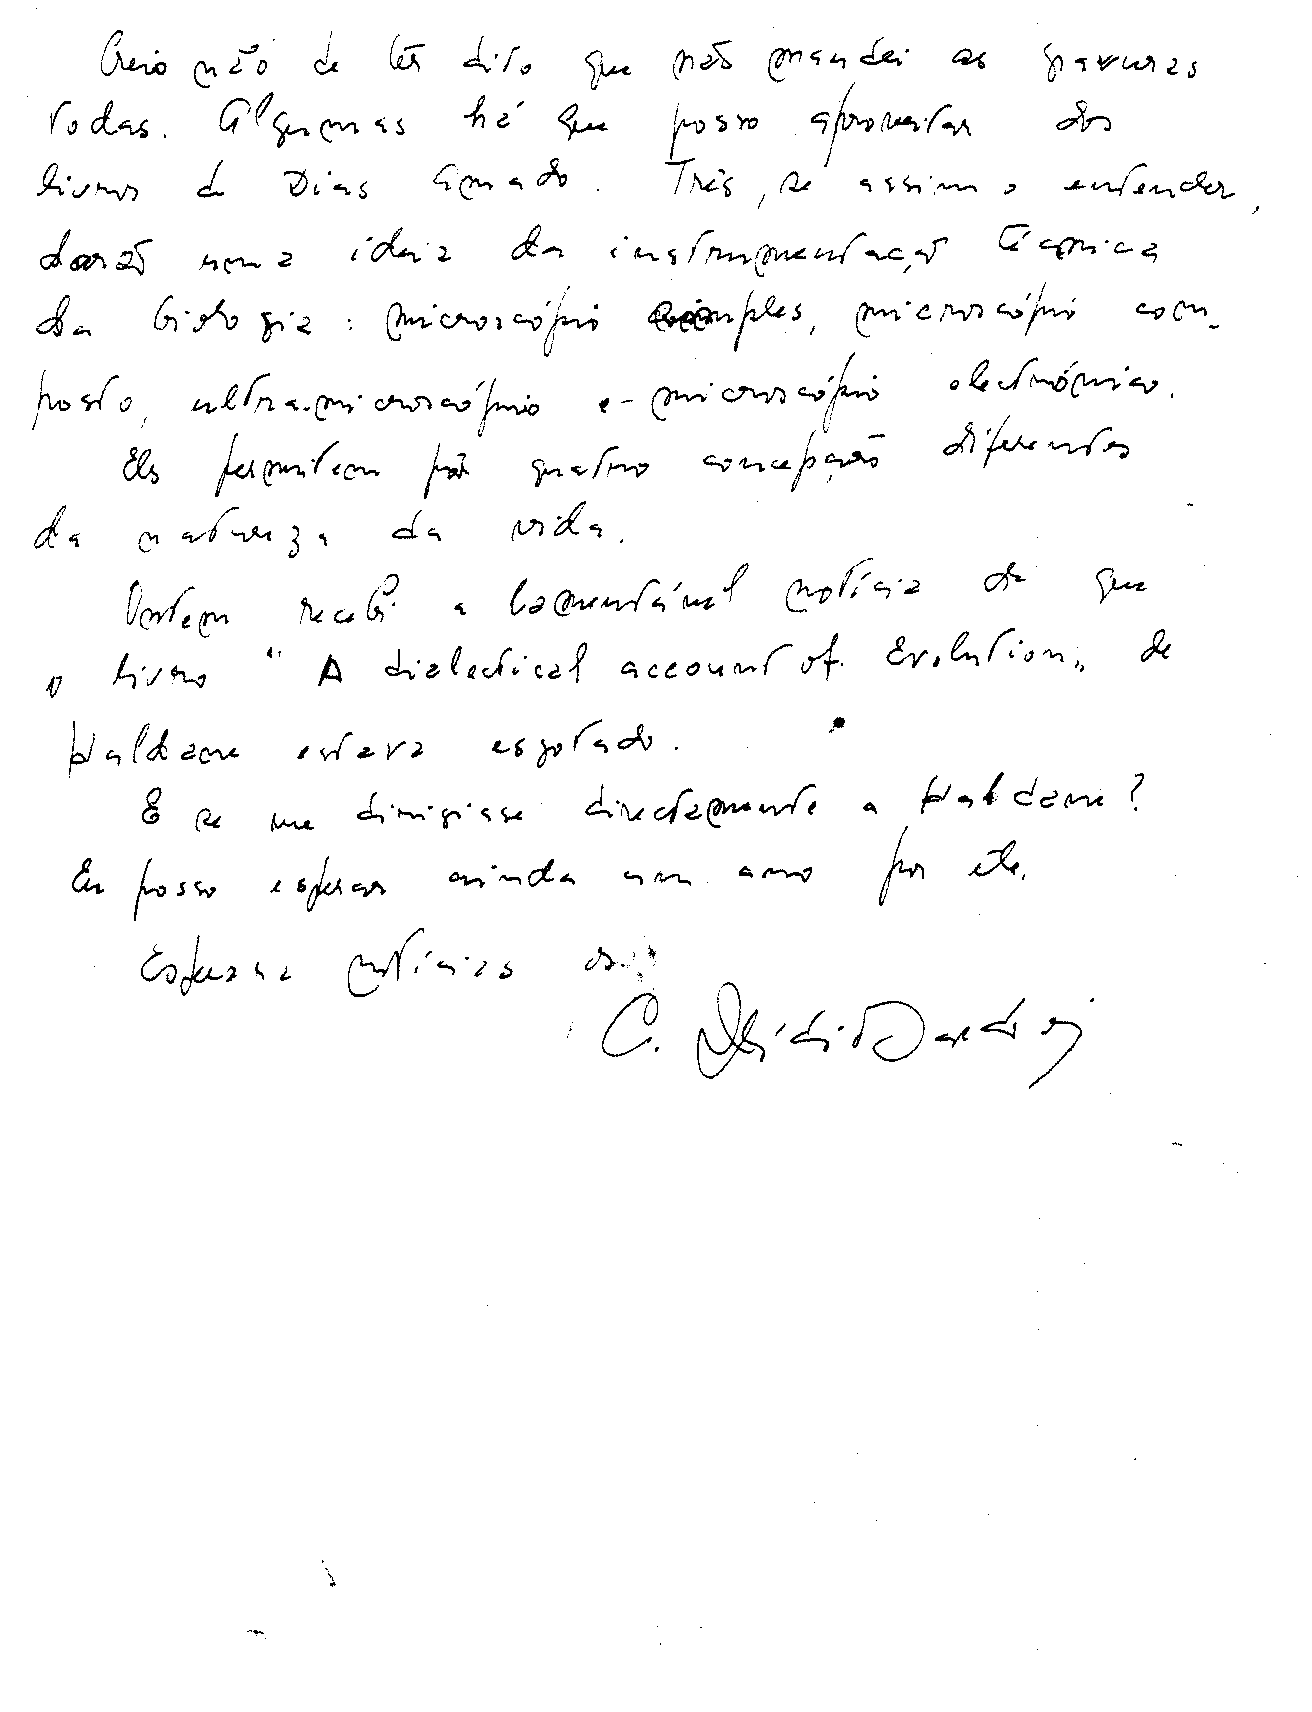 Creio não de ter dito que não mandei as gravuras
todas. Algumas há que posso aproveitar dos
livros de Dias Amado. Três, se assim o entender,
darão uma ideia da instrumentação técnica
da biologia: microscópio simples, microscópio com-
posto, ultra-microscópio e microscópio electrónico.
Els permitem quatro concepções diferentes
da natureza da vida.
Ontem recebi a lamentável notícia de que
o livro "A dialectical account of Evolution" de
Haldane estava esgotado.
E se me dirigisse directamente a Haldane?
Eu posso esperar ainda um ano por êle.
Espera notícias
C.